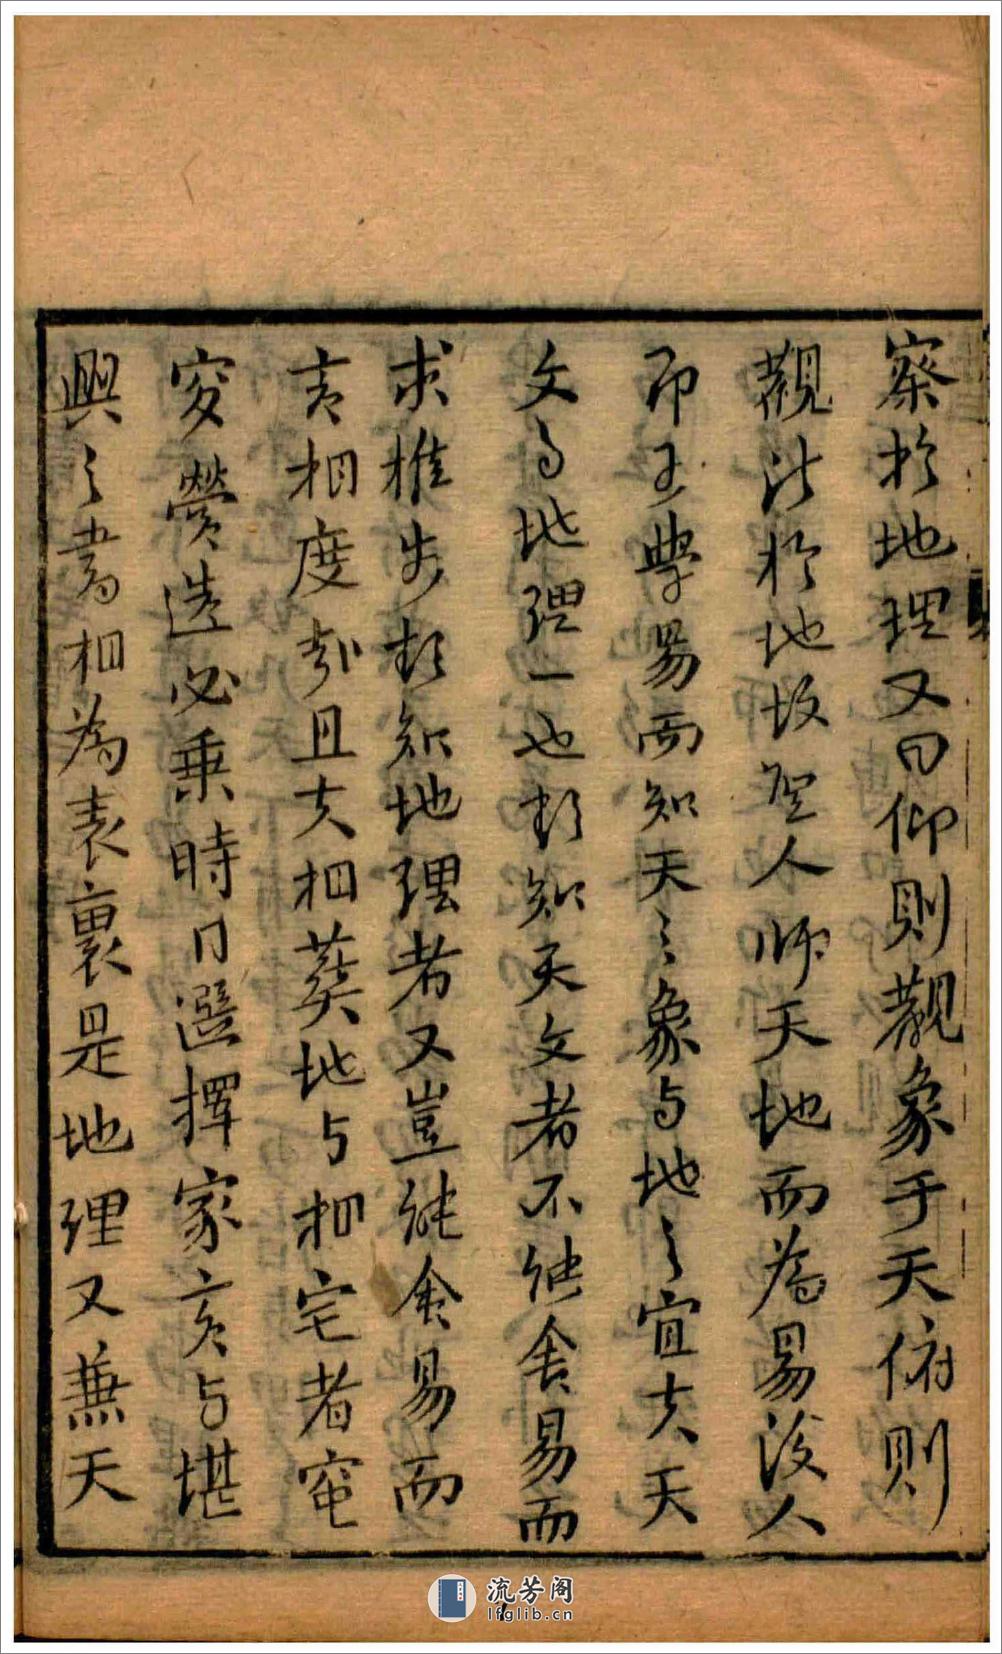 察於地理又曰仰則觀象于天俯則
觀法於地故聖人師天地而為易後人
即王學易而知天之象与地之宜夫天
文与地理一也欲知天文者不能舍易而
求推步欲知地理者又豈能舍易而
言相度哉且夫相葬地与相宅者窀
穸營造必乗時日選擇家言与堪
輿之書相為表裏是地理又兼天
流芳阁
lfglib.cn